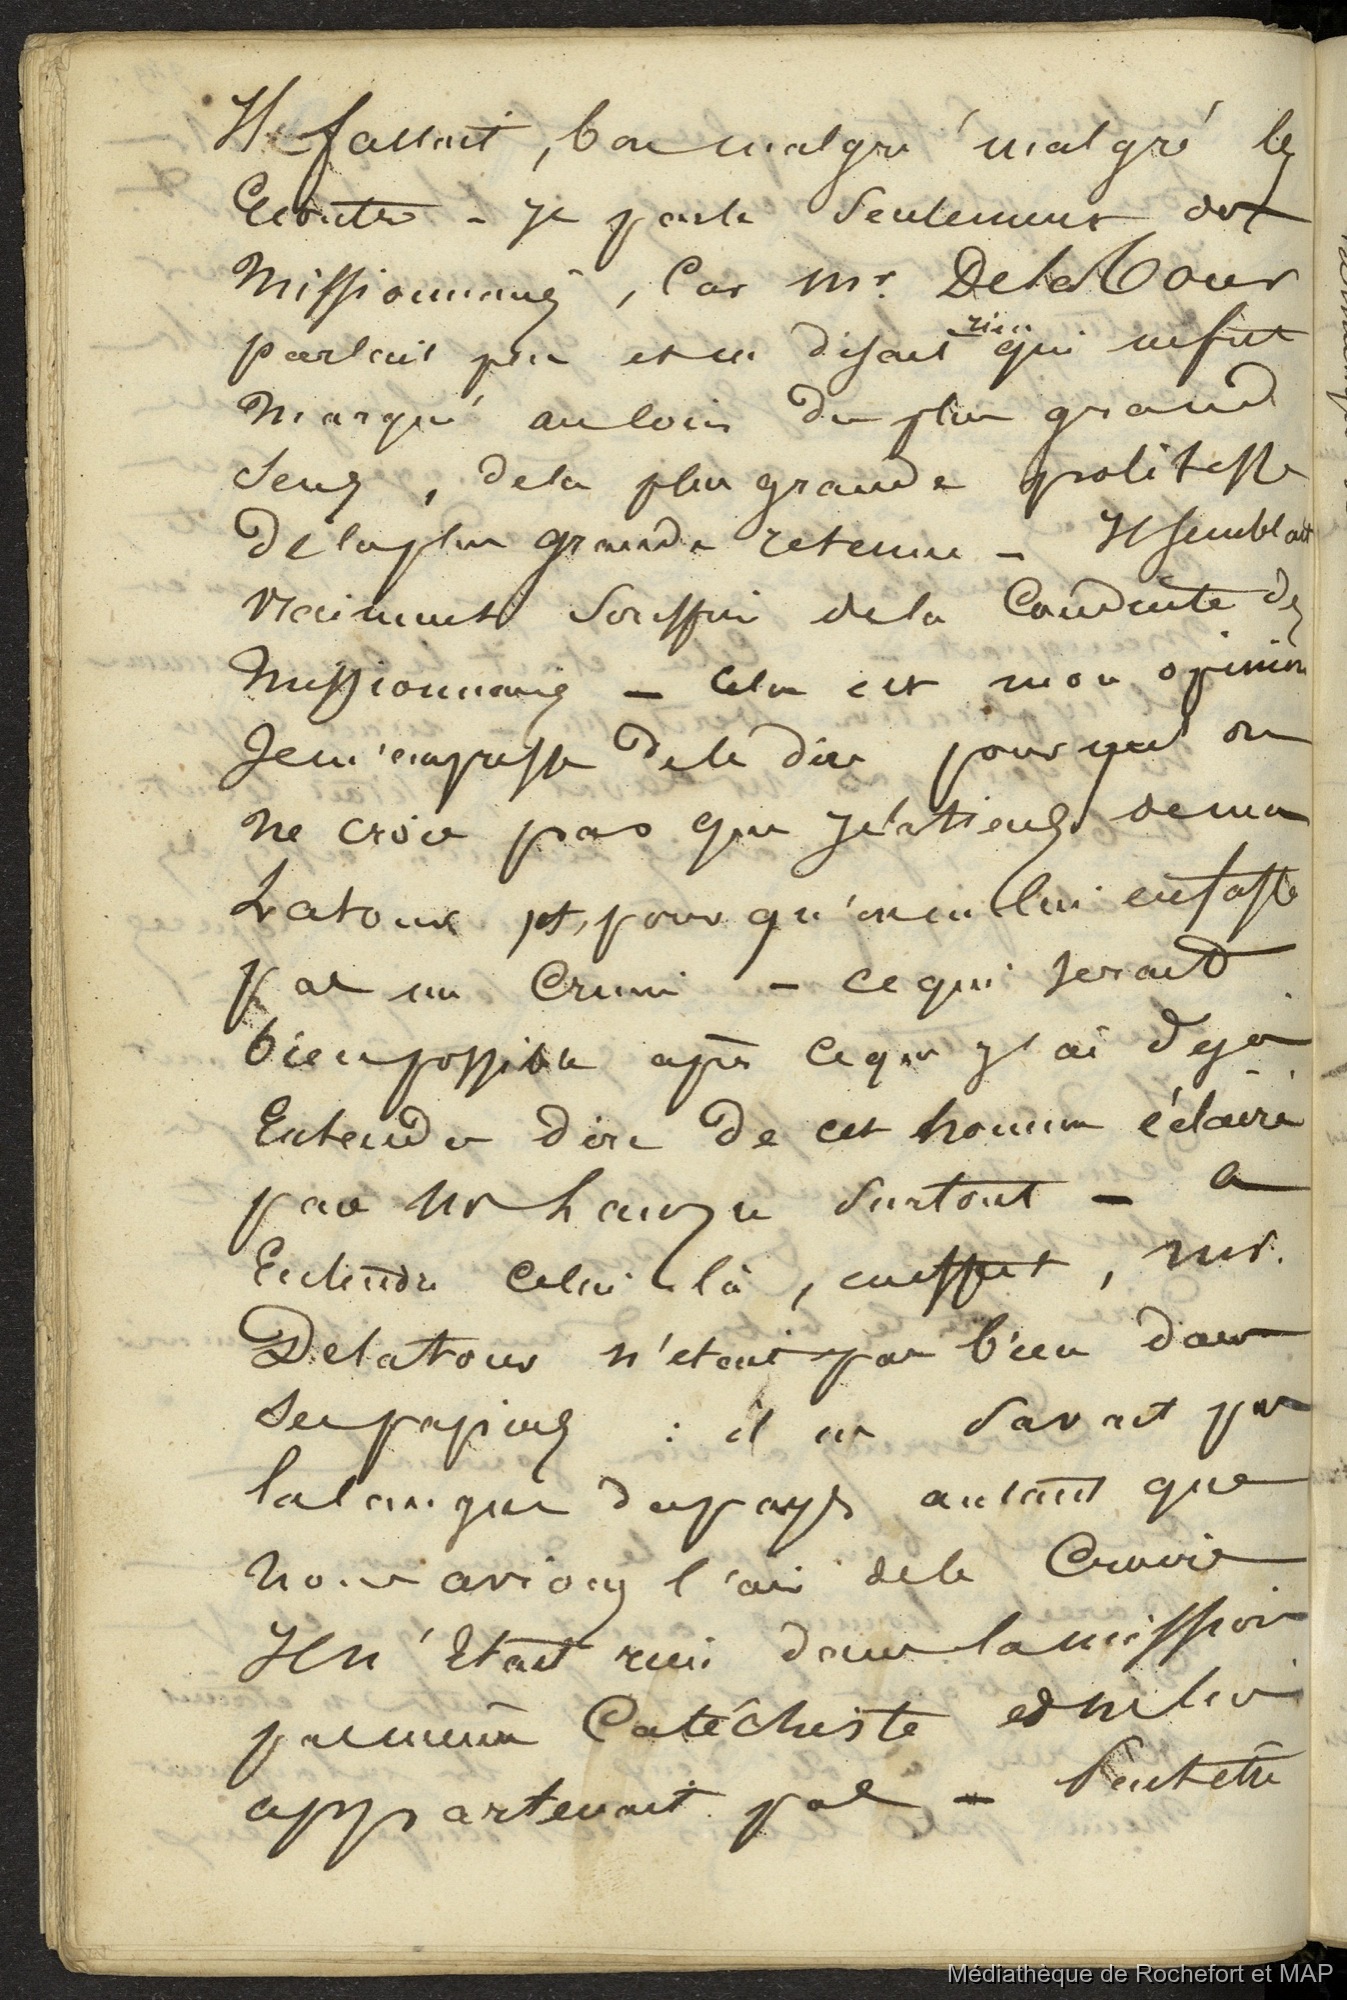 Il fallait, bon malgré malgré les
Ecouter - je parle seulement des
Missionnaires, Car Mr. DelaTour
parlait peu et ne disait rien qui ne fut
Marqué au coin du plus grand
Sens, dela plus grande politesse
De la plus grande retenue - Il semblait
Vraiment Souffrir dela Conduite des
Missionnaires - Cela est mon opinion
Je m'empresse dele dire pour qu'on
ne croie pas que je la tiens de mr
Latour et, pour qu'on ne lui en fasse
pas un Crime - ce qui serait
bien possible après ce que j'ai deja
Entendu dire de cet homme éclairé
par Mr surtout - a
Entendre celui là, en effet, Mr.
Delatour n'etait pas bien dans
Ses papiers : il ne Savait pas
la langue du pays autant que
nous avions l'air dele Croire
Il n'Etait rien dans la mission
pas même Catéchiste et ne lui
appartenait pas - Peutetre
Médiathèque de Rochefort et MAP